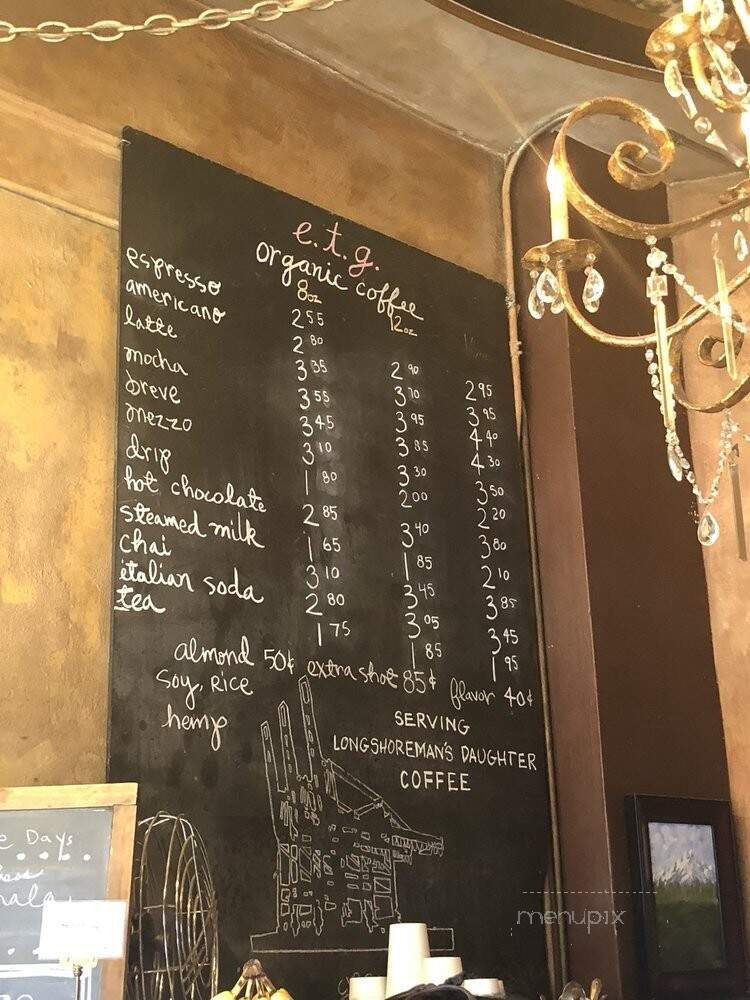 e.t.g.
organic coffee
8oz 12oz
espresso 2 55
americano 2 80 2 90 2 95
latte 3 35 3 70 3 95
mocha 3 55 3 95 4 40
breve 3 45 3 85 4 30
mezzo 3 10 3 30 3 50
drip 1 80 2 00 2 20
hot chocolate 2 85 3 40 3 80
steamed milk 1 65 1 85 2 10
chai 3 10 3 45 3 85
italian soda 2 80 3 05 3 45
tea 1 75 1 85 1 95
almond 50¢ extra shot 85¢ flavor 40¢
soy, rice
hemp
SERVING
LONGSHOREMAN'S DAUGHTER
COFFEE
Days
menupix